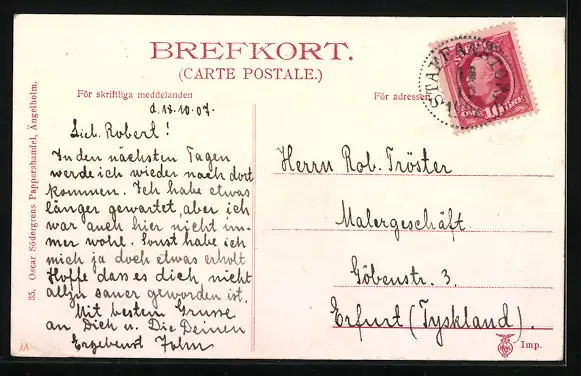 BREFKORT.
(CARTE POSTALE.)
För skriftliga meddelanden
För adressen
35. Oscar Södergrens Pappershandel, Ängelholm.
d. 18.10.07.
Lieb. Robert!
In den nächsten Tagen
werde ich wieder nach dort
kommen. Ich habe etwas
länger gewartet, aber ich
war auch hier nicht im-
mer wohl. Sonst habe ich
mich ja doch etwas erholt
Hoffe dass es dich nicht
allzu sauer geworden ist.
Mit bestem Grusse
an Dich u. Die Deinen
Ergebenst John
Herrn Rob. Tröster
Malergeschäft
Göbenstr. 3.
Erfurt (Tyskland).
Imp.
10 ÖRE